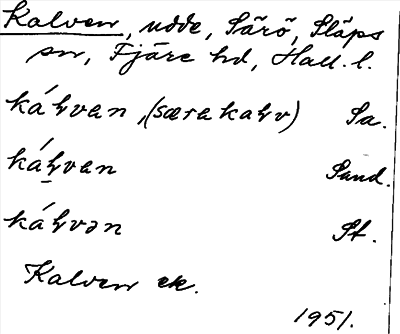 Kalven, udde, Särö, Släps
sn, Fjäre hd, Hall. l.
káꞕvan, (særekaꞕv) Sa.
káꞕvan Sand.
káꞕvən St.
Kalven ek.
1951.